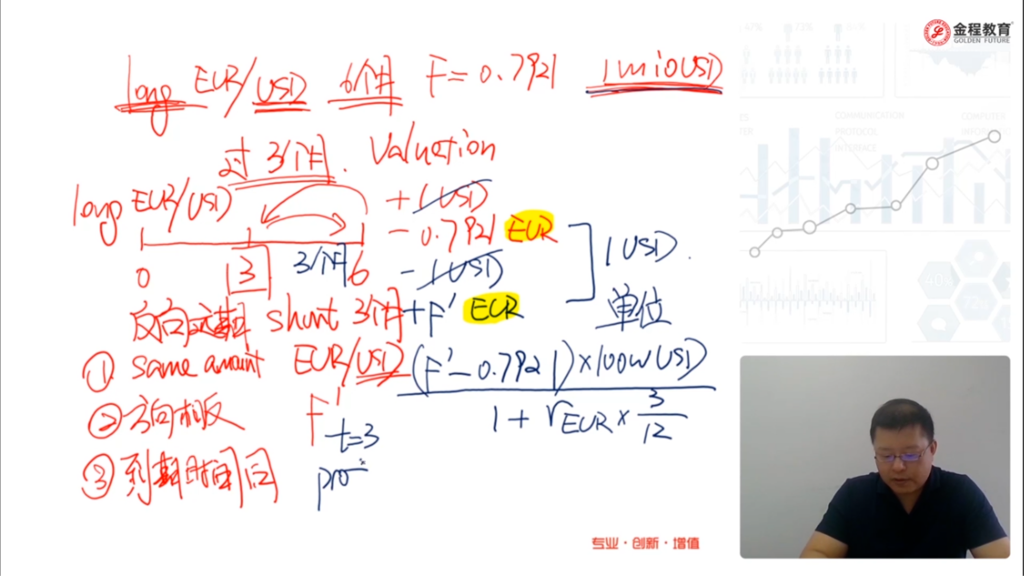 金程教育
GOLDEN FUTURE
long EUR/USD 6个月 F=0.7921 1mioUSD
过 3个月. Valuation
long EUR/USD
+1USD
-0.7921 EUR
-1USD
+F' EUR
1USD.
单位
0 3 3个月 6
反向远期 short 3个月
EUR/USD
① same amount
② 方向相反
③ 到期时间同
F' t=3
pro
(F'-0.7921)×100W USD
1+rEUR×3/12
专业·创新·增值